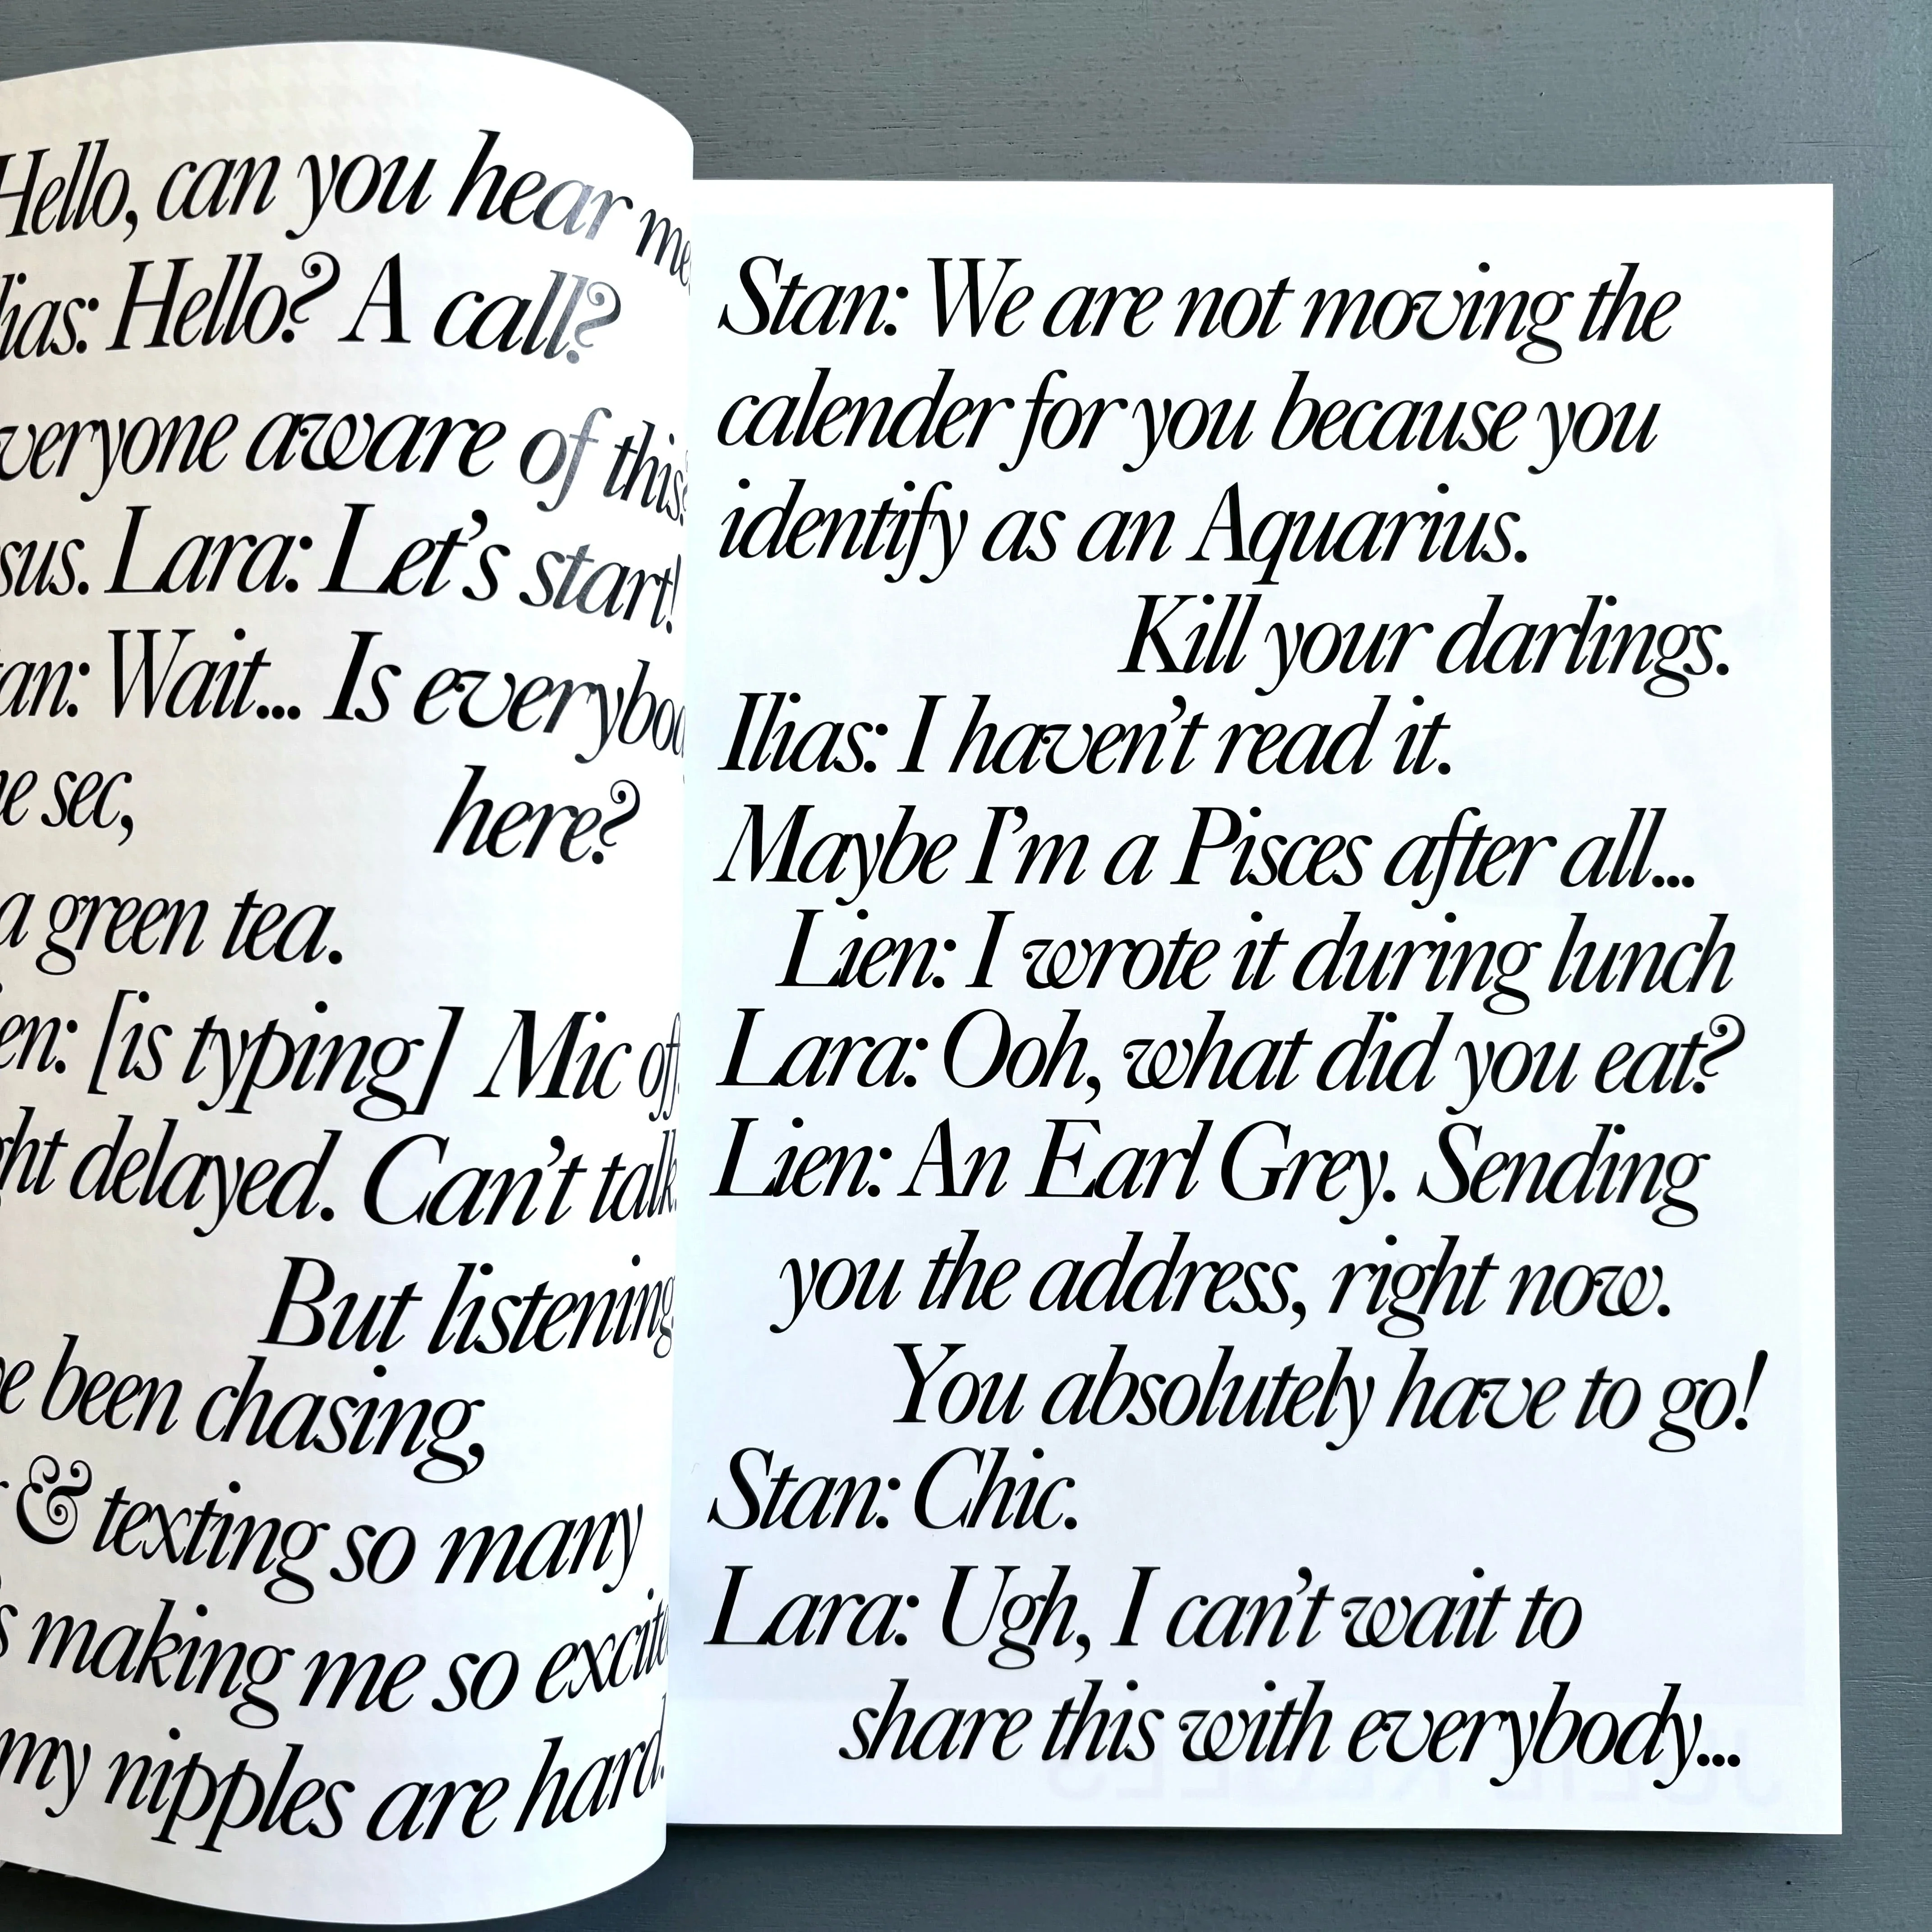 Hello, can you hear me
Hello? A call?
everyone aware of this?
Lara: Let's start!
Wait... Is everybody
sec,
here?
a green tea.
[is typing] Mic off.
delayed. Can't talk.
But listening
been chasing,
& texting so many
making me so excited
my nipples are hard.
Stan: We are not moving the
calender for you because you
identify as an Aquarius.
Kill your darlings.
Ilias: I haven't read it.
Maybe I'm a Pisces after all...
Lien: I wrote it during lunch
Lara: Ooh, what did you eat?
Lien: An Earl Grey. Sending
you the address, right now.
You absolutely have to go!
Stan: Chic.
Lara: Ugh, I can't wait to
share this with everybody...